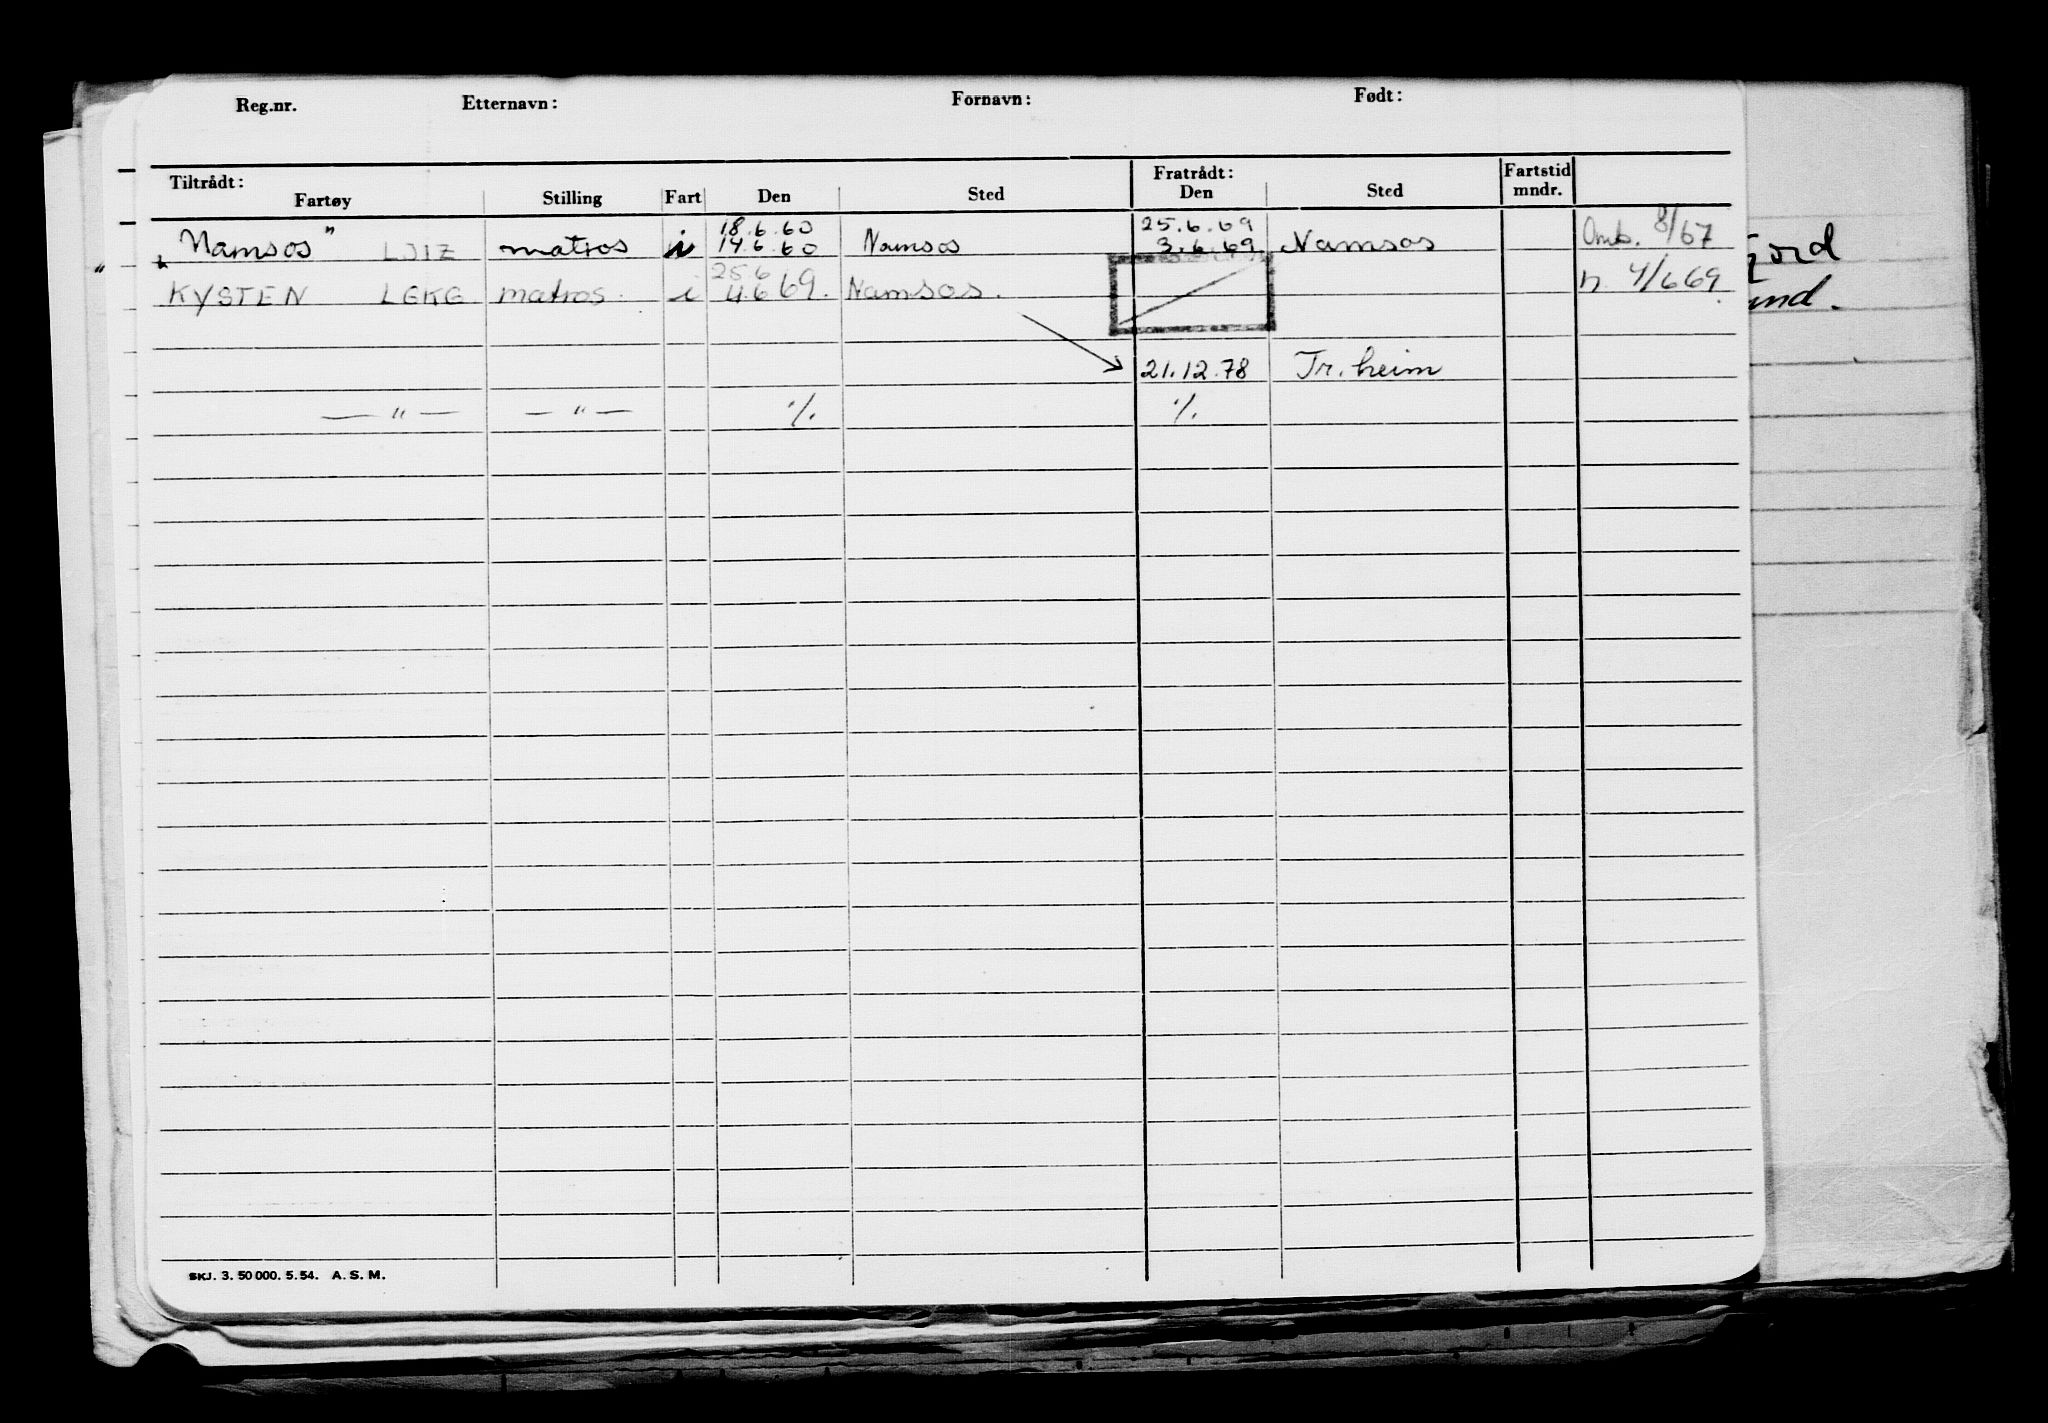 Reg.nr. Etternavn: Fornavn: Født:
Tiltrådt: Fratrådt: Fartstid
Fartøy Stilling Fart Den Sted Den Sted mndr.
18.6.60 25.6.69
„Namsos” LJIZ matros i 14.6.60 Namsos 3.6.69. Namsos Omb. 8/67
25.6
KYSTEN LGKG matros. i 4.6 69. Namsos. n. 4/6 69
21.12.78 Tr.heim
— " — — " — ·/. ·/.
SKJ. 3. 50 000. 5. 54. A. S. M.